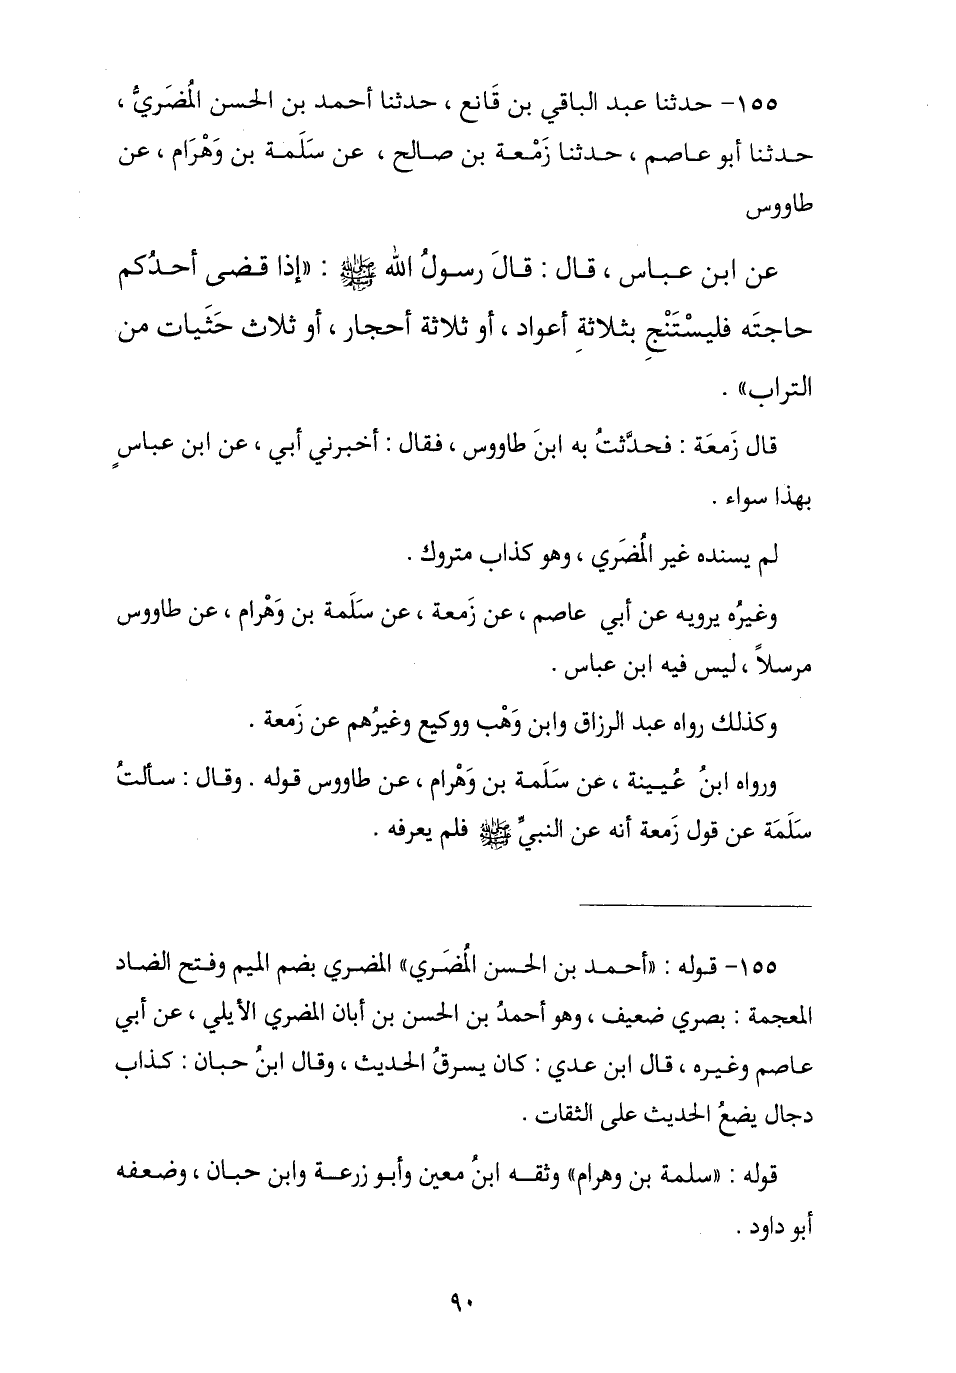 ١٥٥- حدثنا عبد الباقي بن قَانع ، حدثنا أحمد بن الحسن المُضَريُّ ،
حدثنا أبو عاصم ، حدثنا زَمْعة بن صالح ، عن سَلَمة بن وَهْرَام ، عن
طاووس
عن ابن عباس ، قال : قالَ رسولُ الله ﷺ : «إذا قضى أحدُكم
حاجتَه فليسْتَنْجِ بثلاثةِ أعواد ، أو ثلاثة أحجار ، أو ثلاث حَثَيات من
التراب» .
قال زَمعَة : فحدَّثتُ به ابنَ طاووس ، فقال : أخبرني أبي ، عن ابن عباسٍ
بهذا سواء .
لم يسنده غير المُضَري ، وهو كذاب متروك .
وغيرُه يرويه عن أبي عاصم ، عن زَمعة ، عن سَلَمة بن وَهْرام ، عن طاووس
مرسلاً ، ليس فيه ابن عباس .
وكذلك رواه عبد الرزاق وابن وَهْب ووكيع وغيرُهم عن زَمعة .
ورواه ابنُ عُيينة ، عن سَلَمة بن وَهْرام ، عن طاووس قوله . وقال : سألتُ
سَلَمَة عن قول زَمعة أنه عن النبيِّ ﷺ فلم يعرفه .
١٥٥- قوله : «أحمد بن الحسن المُضَري» المضري بضم الميم وفتح الضاد
المعجمة : بصري ضعيف ، وهو أحمدُ بن الحسن بن أبان المضري الأيلي ، عن أبي
عاصم وغيره ، قال ابن عدي : كان يسرقُ الحديث ، وقال ابنُ حبان : كذاب
دجال يضعُ الحديث على الثقات .
قوله : «سلمة بن وهرام» وثقه ابنُ معين وأبو زرعة وابن حبان ، وضعفه
أبو داود .
٩٠